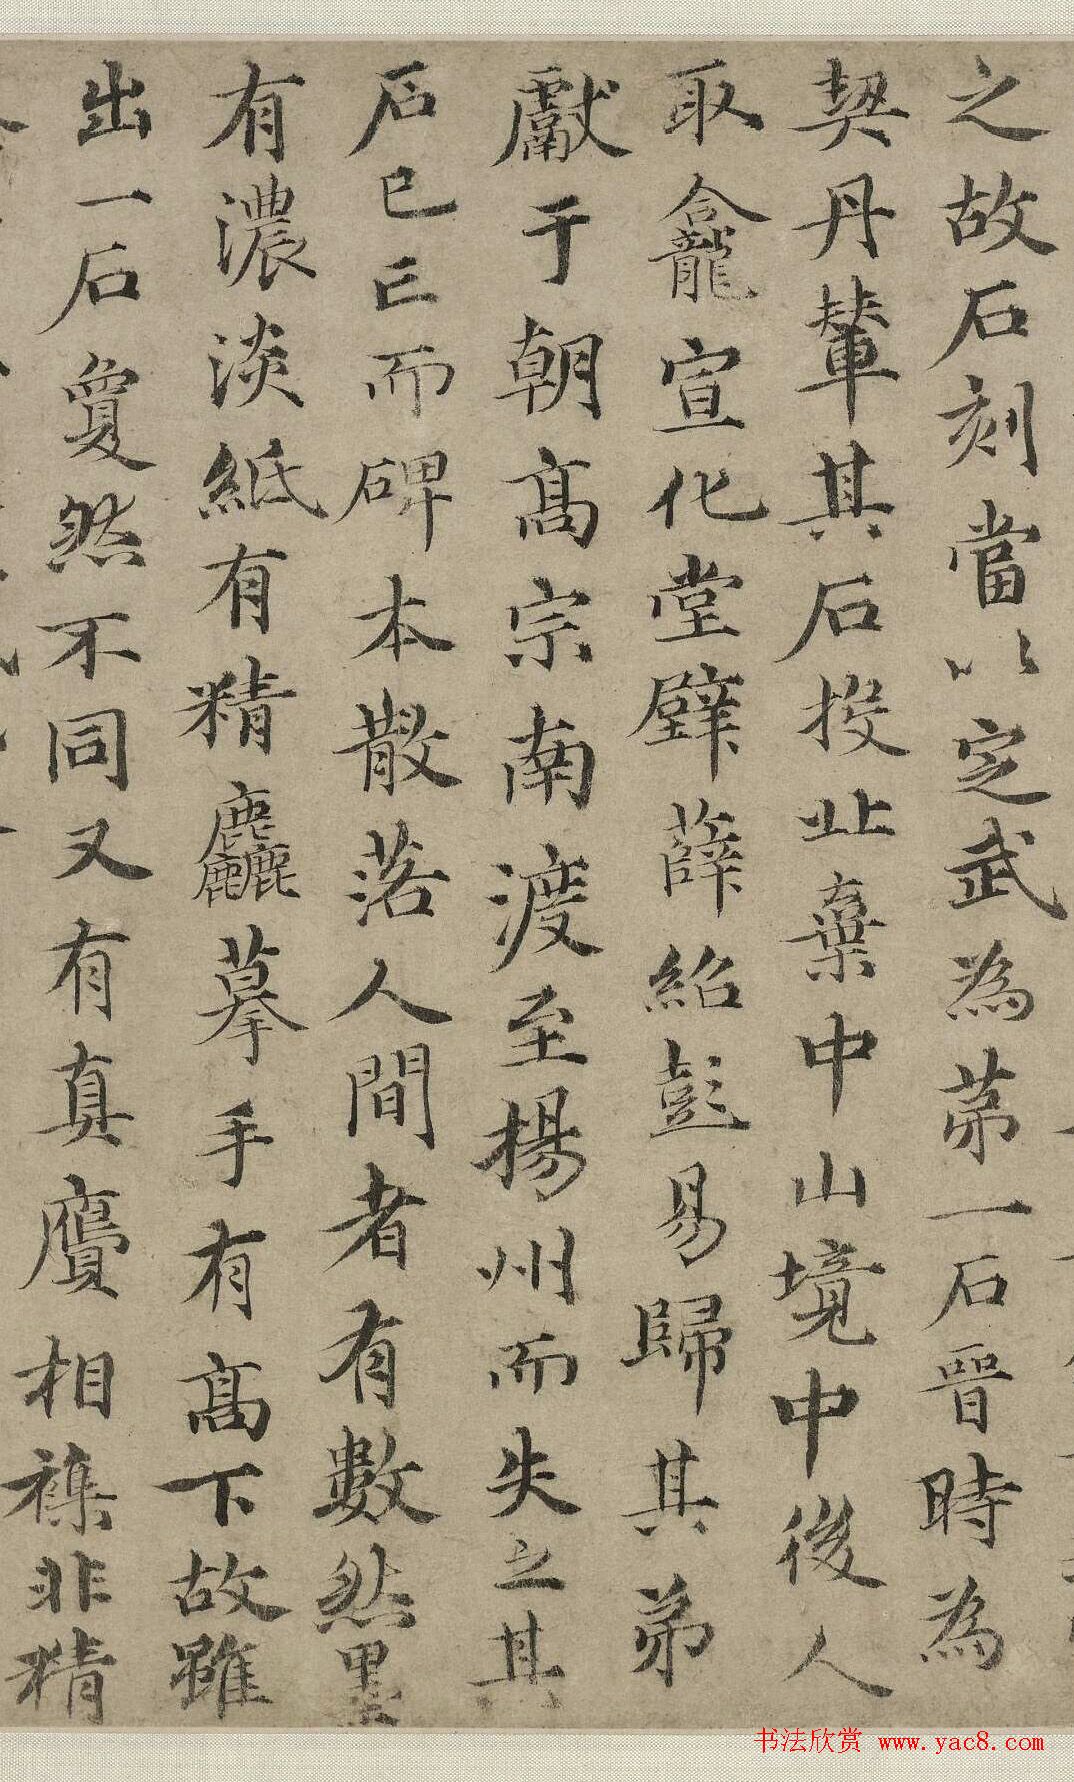 之故石刻當以定武為苐一石晉時為
契丹輦其石投此棄中山境中後人
取龕宣化堂壁薛紹彭易歸其弟
獻于朝高宗南渡至揚州而失之其
石已亡而碑本散落人間者有數然墨
有濃淡紙有精麤摹手有高下故雖
出一石夐然不同又有真贗相襍非精
书法欣赏 www.yac8.com